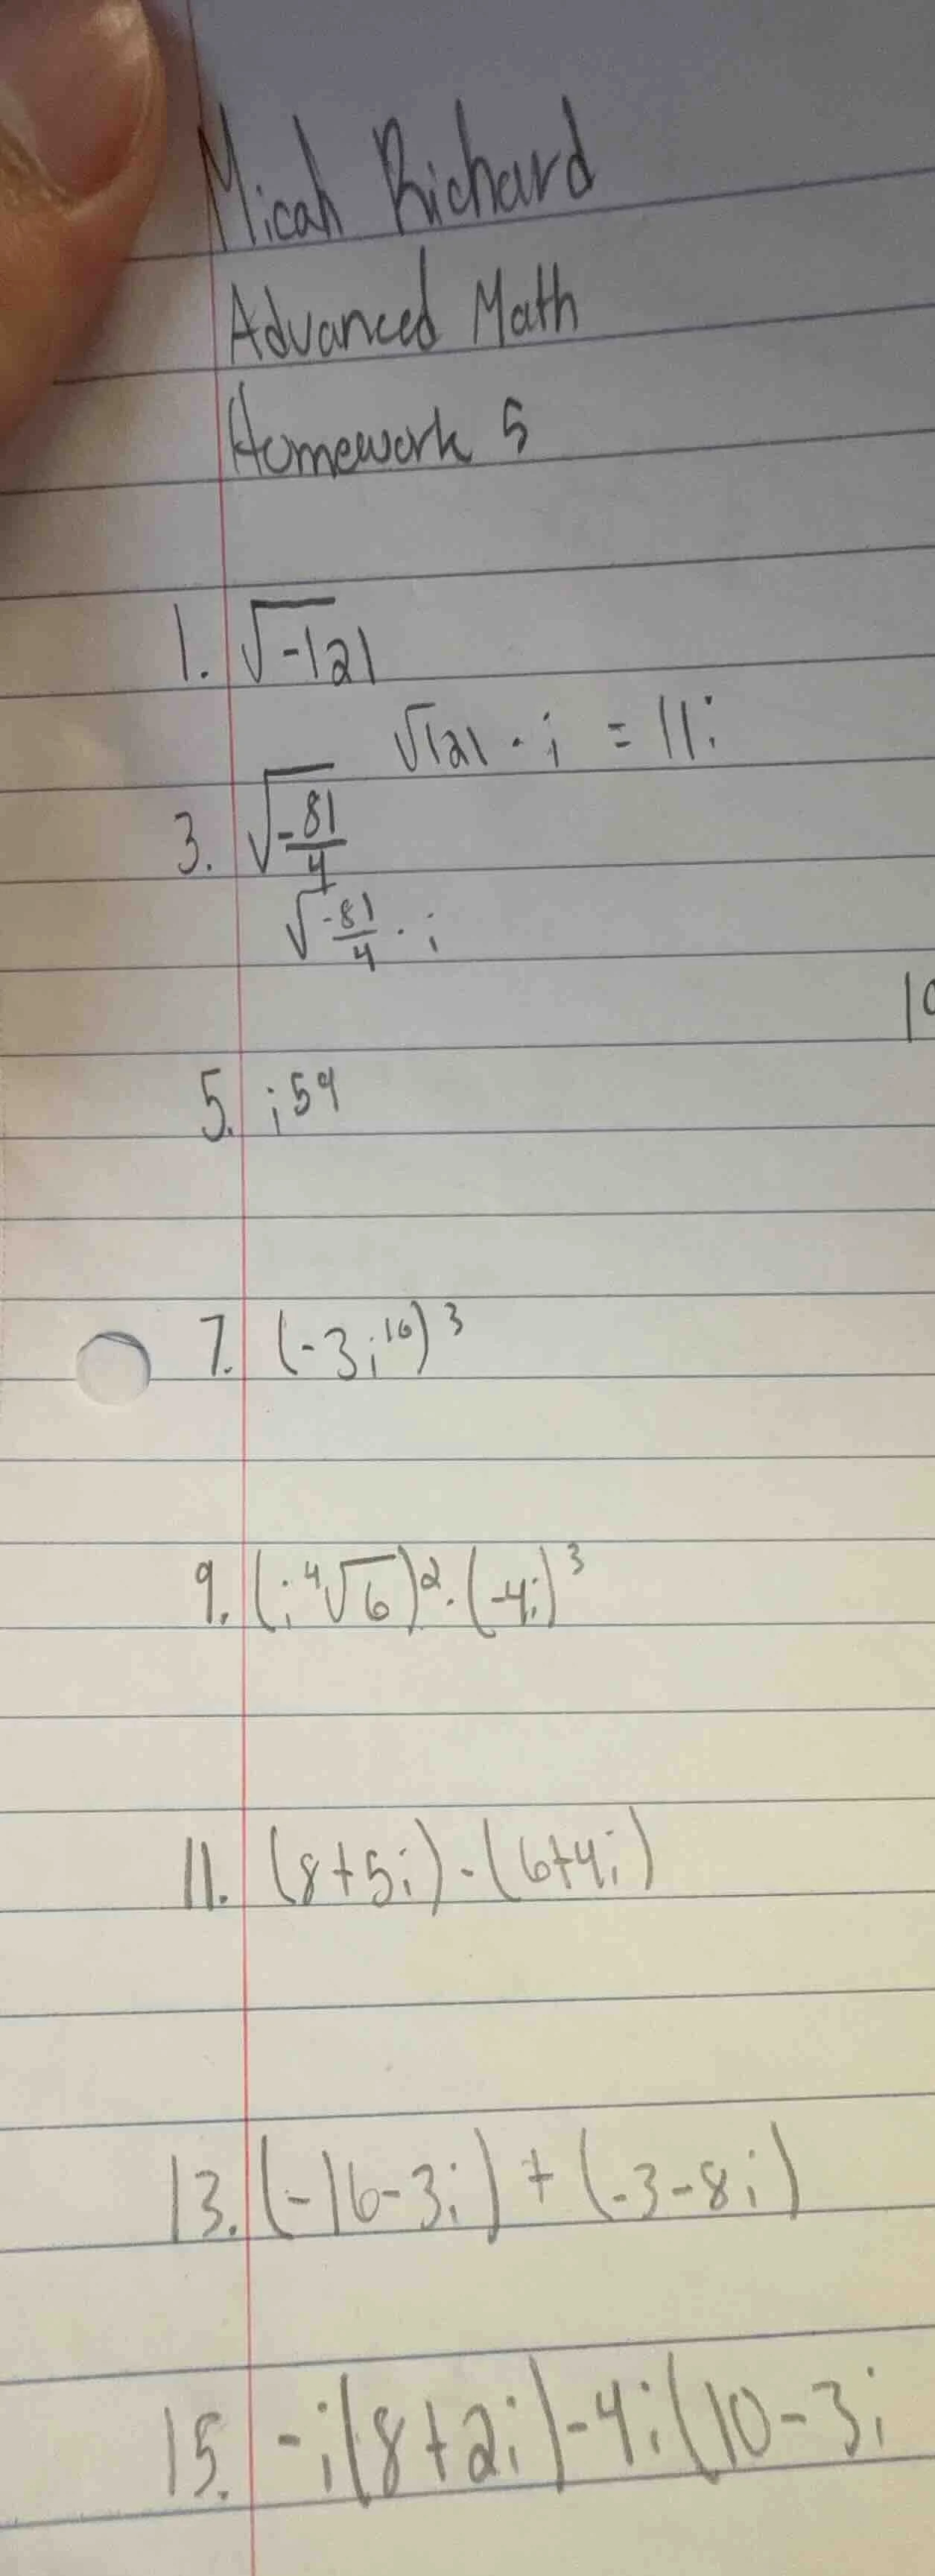 Micah Richard
Advanced Math
Homework 5
1. √-121
√121 · i = 11i
3. √-81/4
√-81/4 · i
5. i⁵⁹
7. (-3i¹⁶)³
9. (i ⁴√6)² · (-4i)³
11. (8+5i) - (6+4i)
13. (-16-3i) + (-3-8i)
15. -i(8+2i)-4i(10-3i